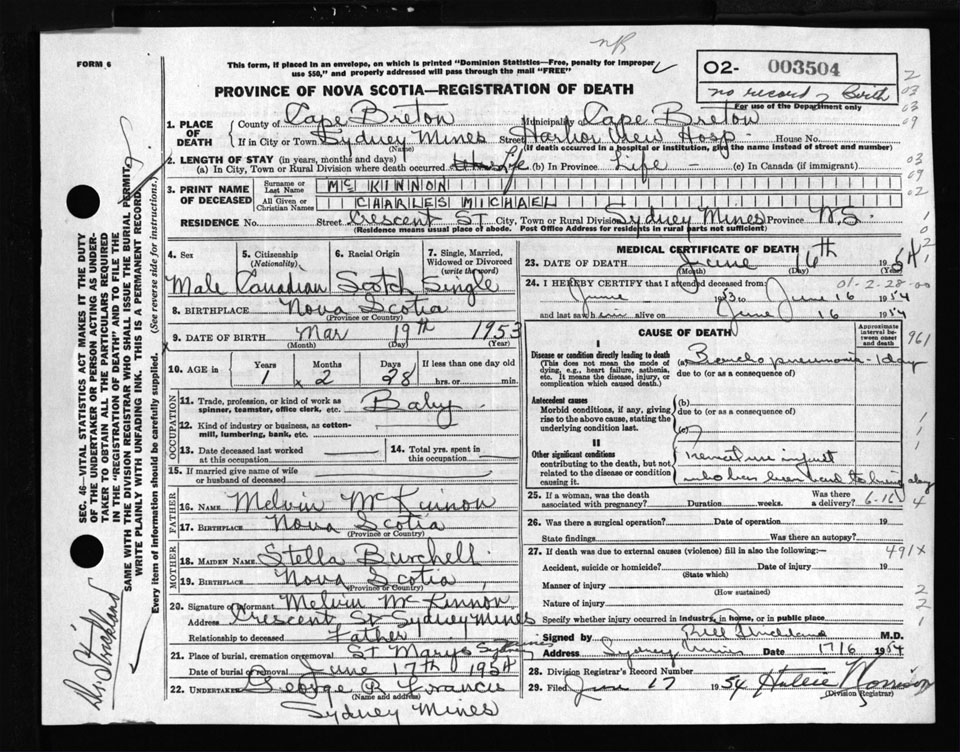 nR
FORM 6
This form, if placed in an envelope, on which is printed "Dominion Statistics—Free, penalty for improper
use $50," and properly addressed will pass through the mail "FREE"
O2- 003504
no record of Birth
For use of the Department only
PROVINCE OF NOVA SCOTIA—REGISTRATION OF DEATH
1. PLACE OF DEATH
County of Cape Breton Municipality of Cape Breton
If in City or Town Sydney Mines Street Harbor View Hosp. House No.
(Name) (If death occurred in a hospital or institution, give the name instead of street and number)
2. LENGTH OF STAY (in years, months and days)
(a) In City, Town or Rural Division where death occurred Life (b) In Province Life - (c) In Canada (if immigrant)
3. PRINT NAME OF DECEASED
Surname or Last Name Mc KINNON
All Given or Christian Names CHARLES MICHAEL
RESIDENCE No. Street Crescent St City, Town or Rural Division Sydney Mines Province N.S.
(Residence means usual place of abode. Post Office Address for residents in rural parts not sufficient)
4. Sex 5. Citizenship (Nationality) 6. Racial Origin 7. Single, Married, Widowed or Divorced (write the word)
Male Canadian Scotch Single
8. BIRTHPLACE Nova Scotia
(Province or Country)
9. DATE OF BIRTH Mar 19th 1953
(Month) (Day) (Year)
10. AGE in Years Months Days If less than one day old
1 2 28 hrs. or min.
OCCUPATION
11. Trade, profession, or kind of work as spinner, teamster, office clerk, etc. Baby
12. Kind of industry or business, as cotton-mill, lumbering, bank, etc.
13. Date deceased last worked at this occupation
14. Total yrs. spent in this occupation
15. If married give name of wife or husband of deceased
FATHER
16. NAME Melvin McKinnon
17. BIRTHPLACE Nova Scotia
(Province or Country)
MOTHER
18. MAIDEN NAME Stella Burchell
19. BIRTHPLACE Nova Scotia
(Province or Country)
20. Signature of Informant Melvin McKinnon
Address Crescent St Sydney Mines
Relationship to deceased Father
21. Place of burial, cremation or removal St Marys Sydney Mines
Date of burial or removal June 17th 1954
22. UNDERTAKER George P. Francis
(Name and address)
Sydney Mines
MEDICAL CERTIFICATE OF DEATH
23. DATE OF DEATH June 16th 1954
(Month) (Day) (Year)
01-2-28-00
24. I HEREBY CERTIFY that I attended deceased from:
June 1953 to June 16 1954
and last saw him alive on June 16 1954
CAUSE OF DEATH
Approximate interval between onset and death
961
I
Disease or condition directly leading to death (a) Bronchopneumonia - 1 day
(This does not mean the mode of dying, e.g., heart failure, asthenia, etc. It means the disease, injury, or complication which caused death.)
due to (or as a consequence of)
Antecedent causes
Morbid conditions, if any, giving rise to the above cause, stating the underlying condition last.
(b)
due to (or as a consequence of)
(c)
II
Other significant conditions contributing to the death, but not related to the disease or condition causing it.
Premature infant
who has been hard to bring along
25. If a woman, was the death associated with pregnancy? Duration weeks. Was there a delivery?
6-16 4
26. Was there a surgical operation? Date of operation 19
State findings Was there an autopsy?
27. If death was due to external causes (violence) fill in also the following:—
491X
Accident, suicide or homicide? Date of injury 19
(State which)
Manner of injury
(How sustained)
Nature of injury
Specify whether injury occurred in industry, in home, or in public place
Signed by M.D.
Address Sydney Mines Date 17/6 1954
28. Division Registrar's Record Number
29. Filed June 17 1954
(Division Registrar)
SEC. 46—VITAL STATISTICS ACT MAKES IT THE DUTY
OF THE UNDERTAKER OR PERSON ACTING AS UNDER-
TAKER TO OBTAIN ALL THE PARTICULARS REQUIRED
IN THE "REGISTRATION OF DEATH" AND TO FILE THE
SAME WITH THE DIVISION REGISTRAR WHO SHALL ISSUE THE BURIAL PERMIT.
WRITE PLAINLY WITH UNFADING INK. THIS IS A PERMANENT RECORD.
Every item of information should be carefully supplied. (See reverse side for instructions.)
Dr Strickland